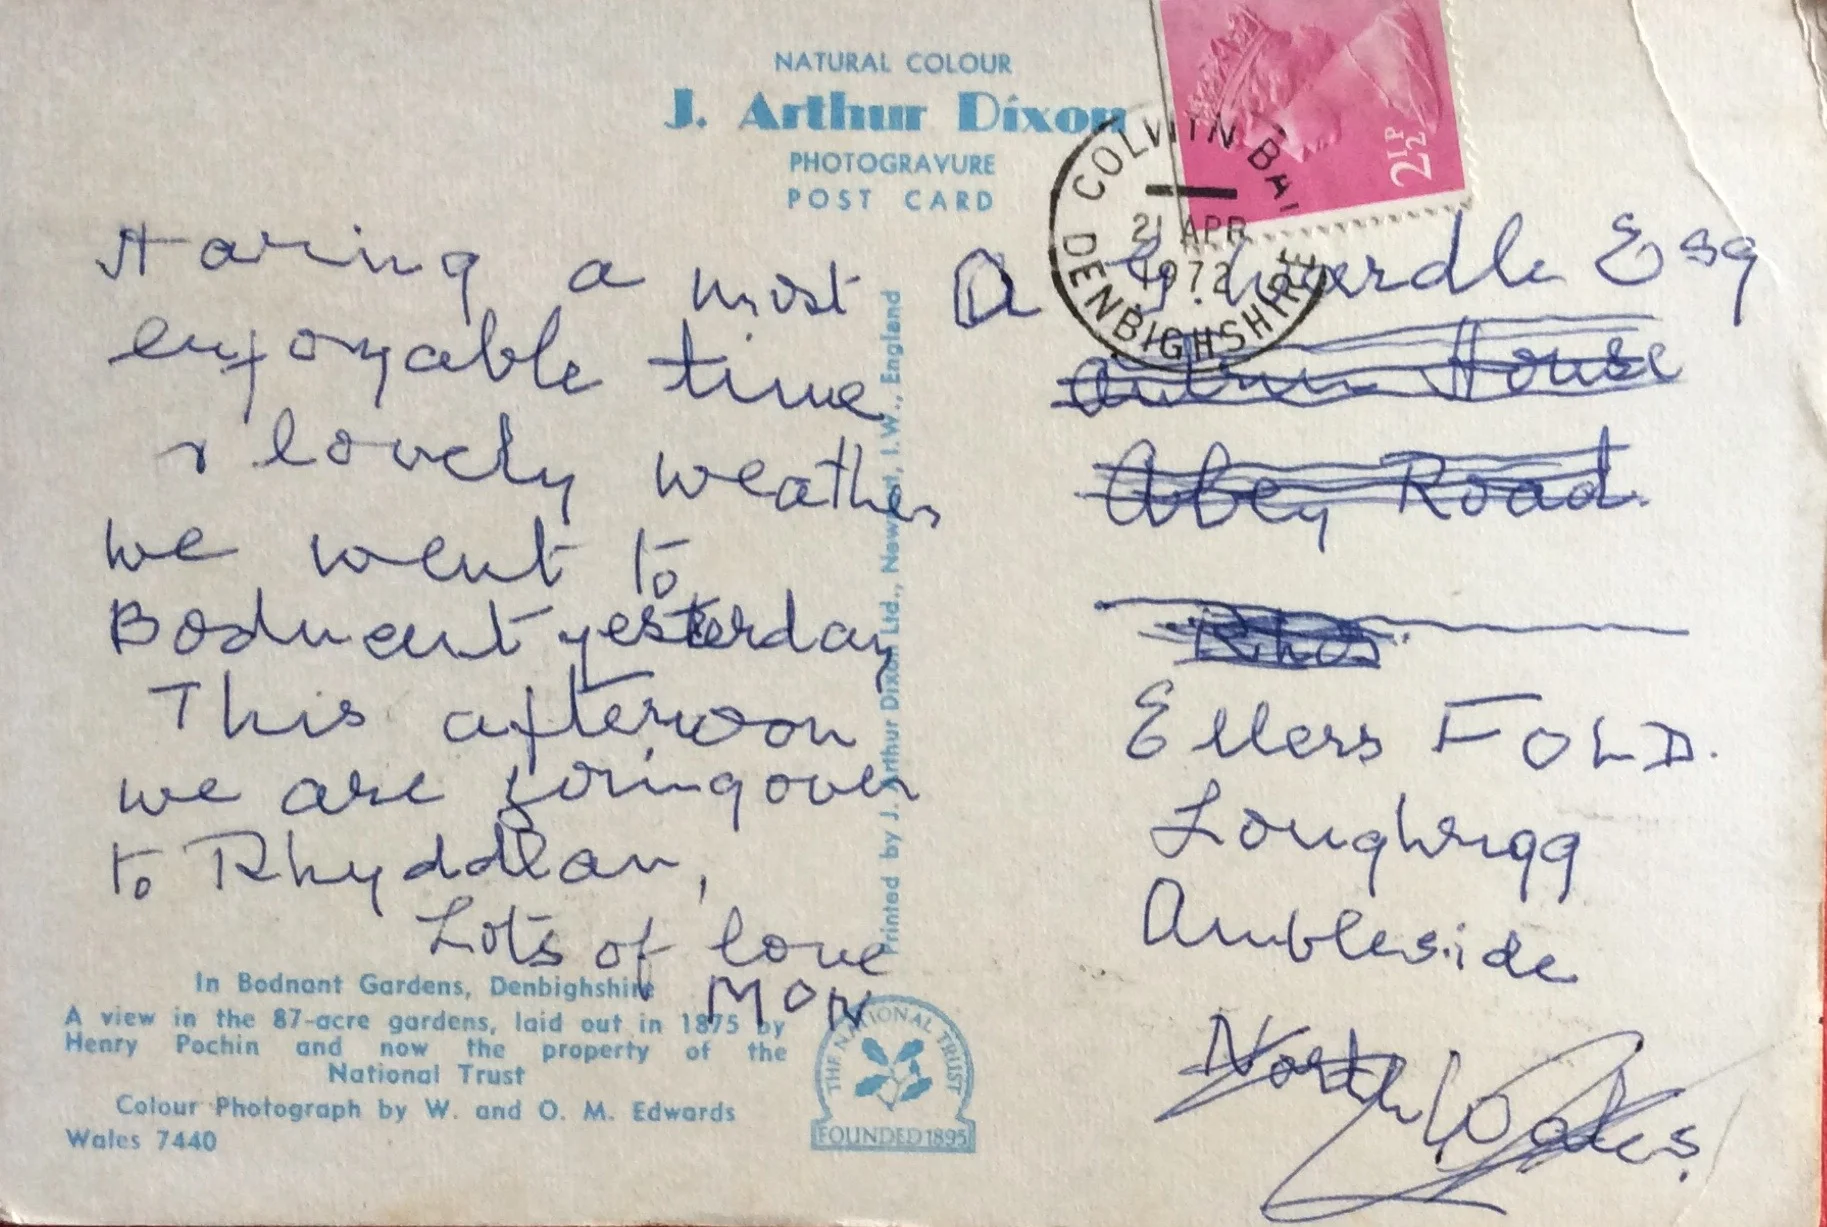 NATURAL COLOUR
J. Arthur Dixon
PHOTOGRAVURE
POST CARD
2½P
COLWYN BAY
21 APR
1972
DENBIGHSHIRE
Having a most
enjoyable time
& lovely weather
we went to
Bodnant yesterday
This afternoon
we are going over
to Rhyddlan,
Lots of love
MON
In Bodnant Gardens, Denbighshire
A view in the 87-acre gardens, laid out in 1875 by
Henry Pochin and now the property of the
National Trust
Colour Photograph by W. and O. M. Edwards
Wales 7440
THE NATIONAL TRUST
FOUNDED 1895
Printed by J. Arthur Dixon Ltd., Newport, I.W., England
Esq
House
Abey Road.
Rhos.
Ellers FOLD.
Loughrigg
Ambleside
North Wales.